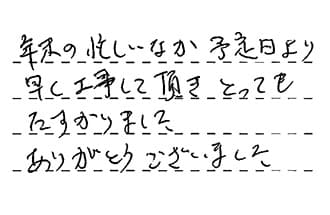 年末の忙しいなか 予定日より
早く工事して頂き とっても
たすかりました
ありがとうございました